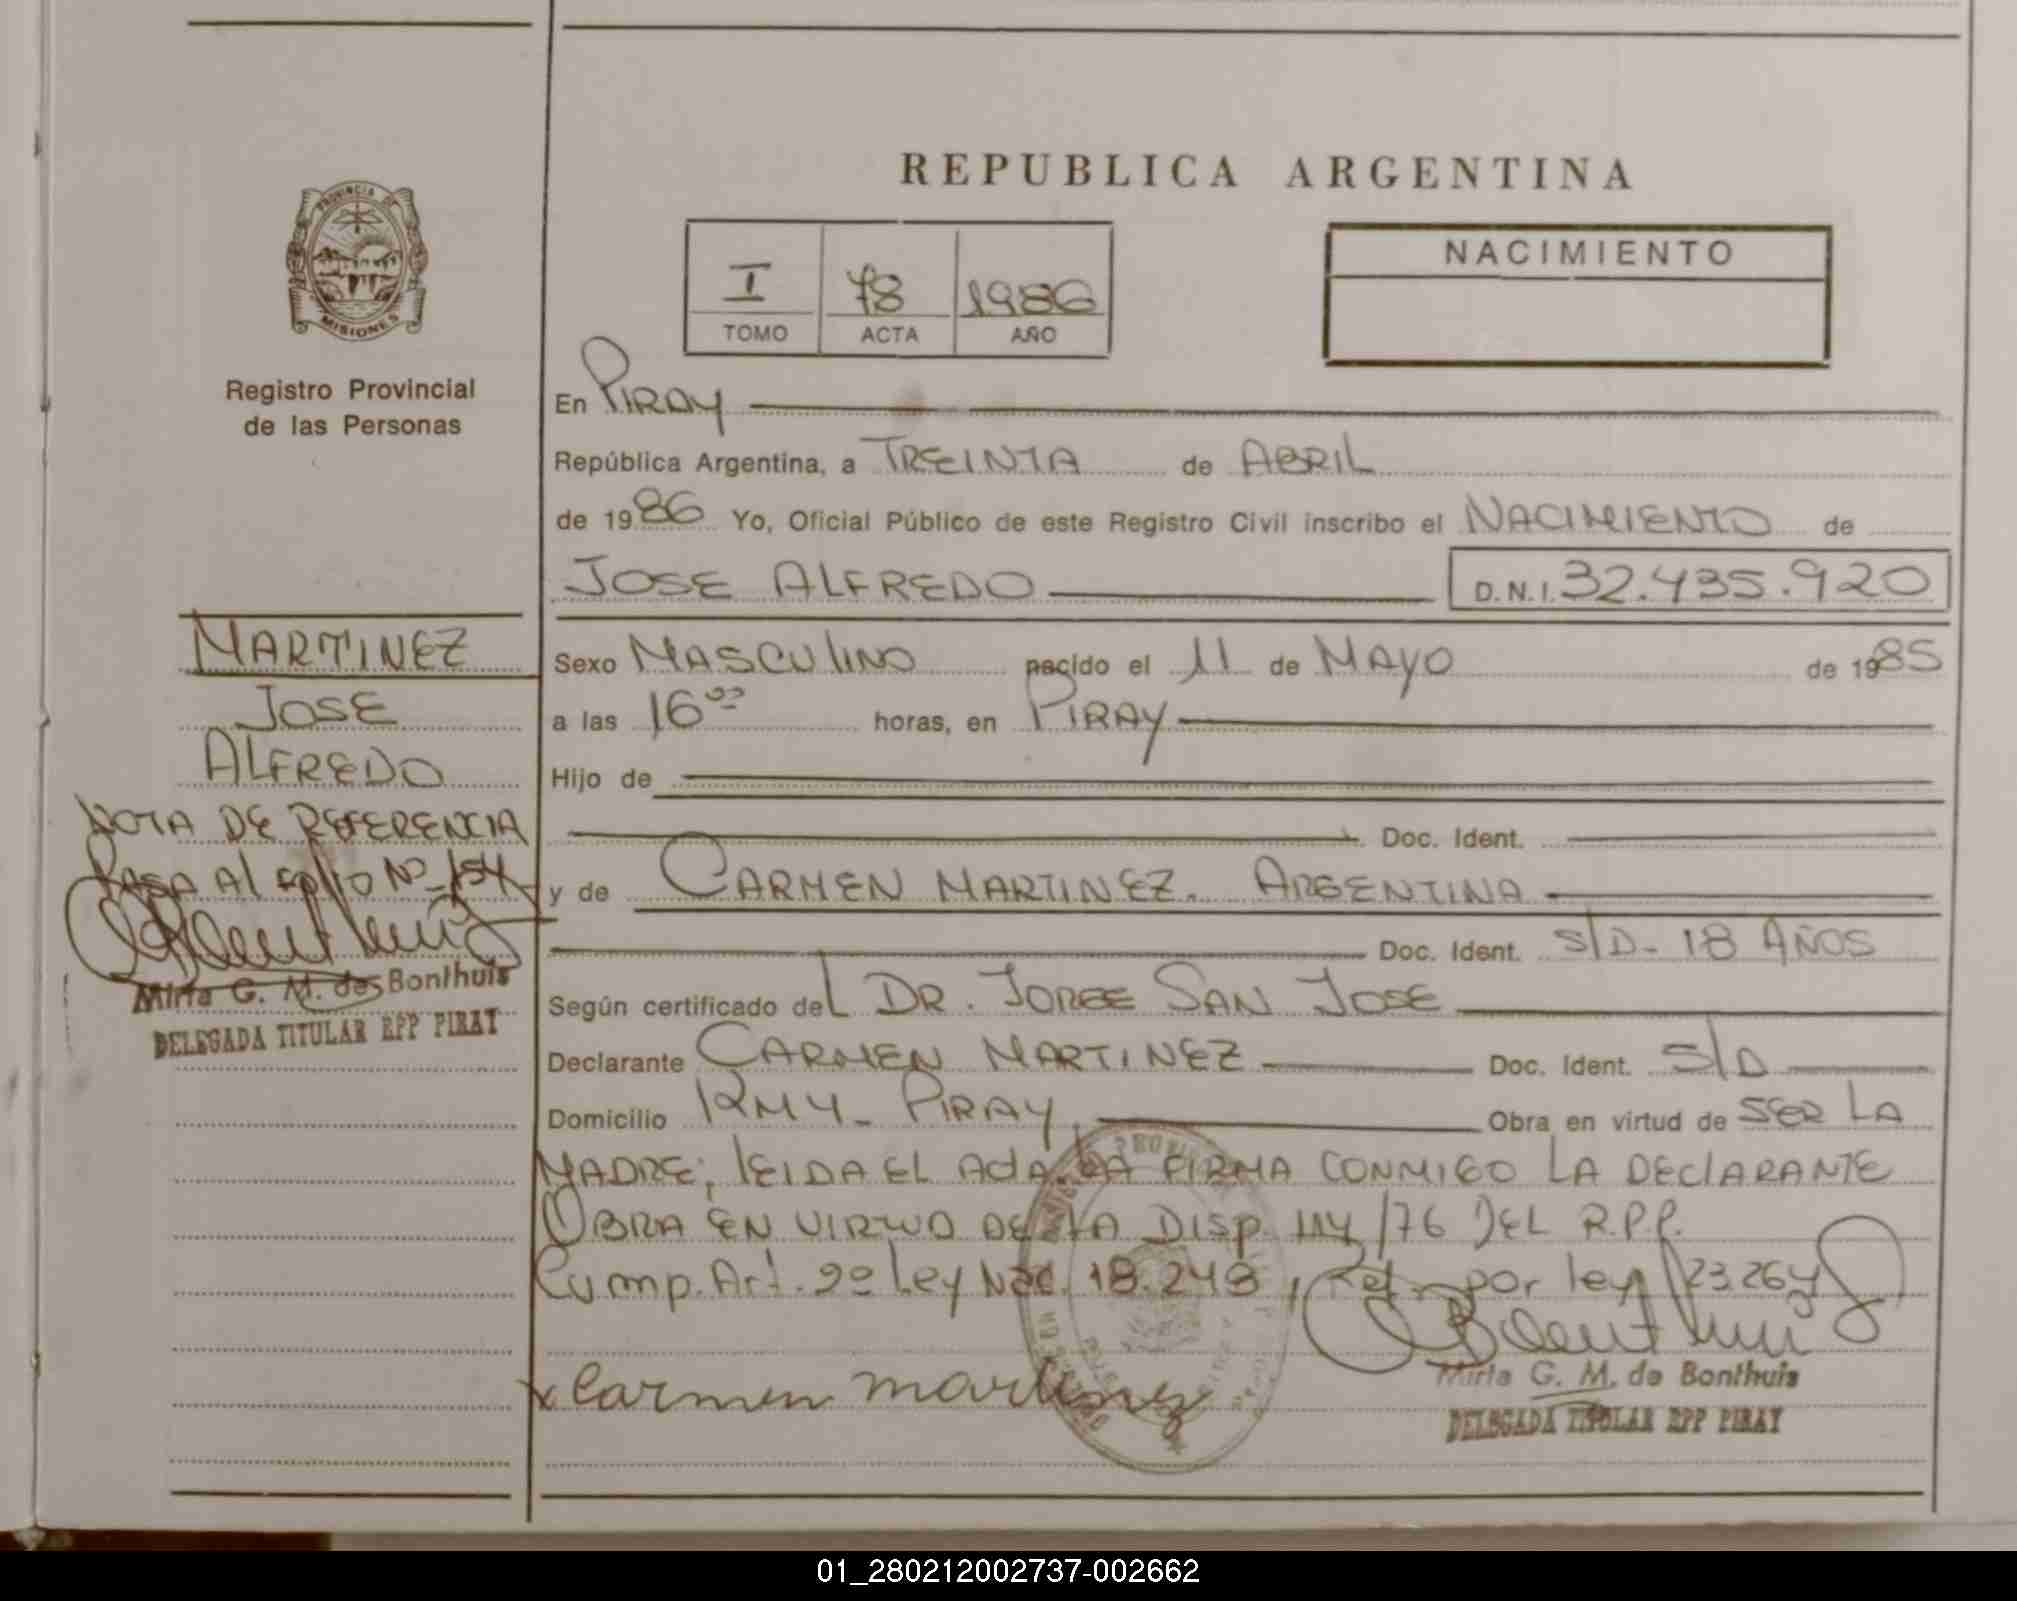 REPUBLICA ARGENTINA
PROVINCIA DE
MISIONES
Registro Provincial
de las Personas
I 78 1986
TOMO ACTA AÑO
NACIMIENTO
En PIRAY
República Argentina, a TREINTA de ABRIL
de 1986 Yo, Oficial Público de este Registro Civil inscribo el NACIMIENTO de
JOSE ALFREDO D.N.I. 32.435.920
Sexo MASCULINO nacido el 11 de MAYO de 1985
a las 16 horas, en PIRAY
Hijo de
Doc. Ident.
y de CARMEN MARTINEZ. ARGENTINA
Doc. Ident. S/D- 18 AÑOS
Según certificado del DR. JORGE SAN JOSE
Declarante CARMEN MARTINEZ Doc. Ident. S/D
Domicilio KM4- PIRAY Obra en virtud de SER LA
MADRE; LEIDA EL ACTA, LA FIRMA CONMIGO LA DECLARANTE
OBRA EN VIRTUD DE LA DISP. 114/76 DEL R.P.P.
Cump. Art. 2º Ley Nac. 18.248, Ref. por ley 23.264
x Carmen martinez
Mirta G. M. de Bonthuis
DELEGADA TITULAR RPP PIRAY
MARTINEZ
JOSE
ALFREDO
NOTA DE REFERENCIA
PASA Al FOLIO Nº 154
Mirta G. M. de Bonthuis
DELEGADA TITULAR RPP PIRAY
01_280212002737-002662